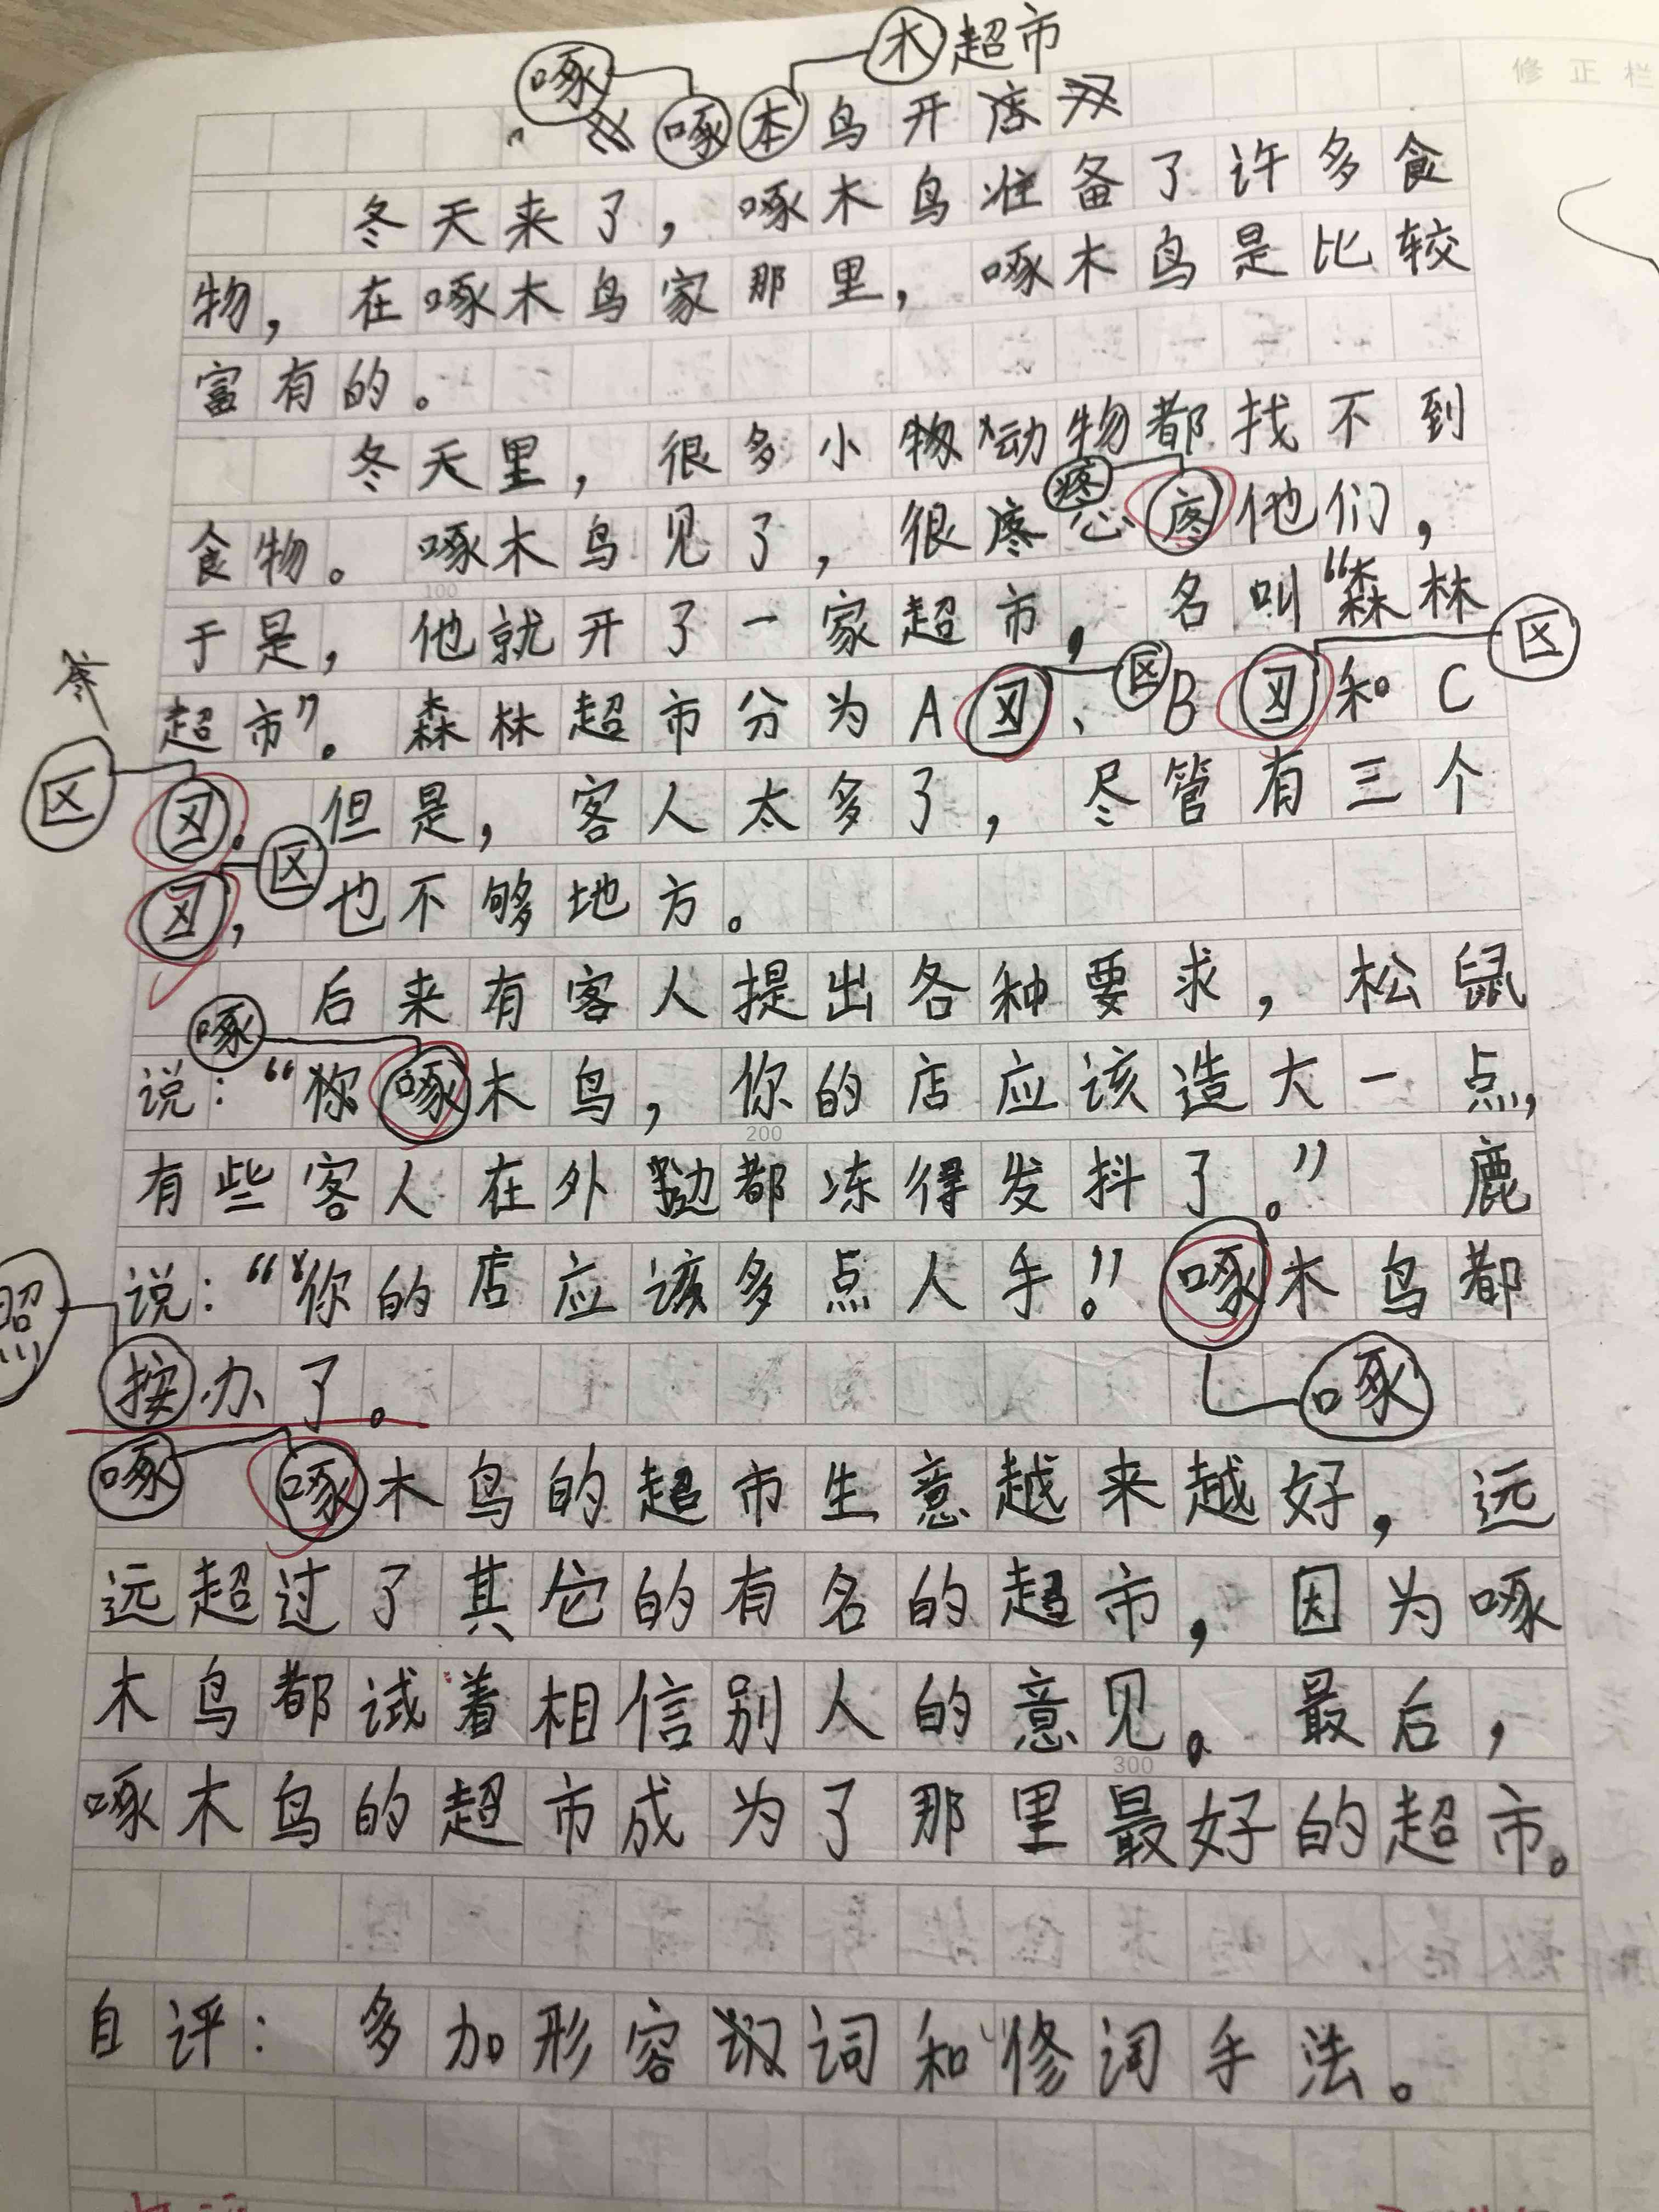 修正栏
木超市
啄
啄本鸟开店
冬天来了，啄木鸟准备了许多食
物，在啄木鸟家那里，啄木鸟是比较
富有的。
冬天里，很多小动物都找不到
疼
食物。啄木鸟见了，很心疼他们，
100
于是，他就开了一家超市，名叫“森林
区
区
超市”。森林超市分为A区、B区和C
区
区。但是，客人太多了，尽管有三个
区
区，也不够地方。
后来有客人提出各种要求，松鼠
啄
说：“啄木鸟，你的店应该造大一点，
200
有些客人在外边都冻得发抖了。”鹿
说：“你的店应该多点人手！”啄木鸟都
照
按办了。
啄
啄
啄木鸟的超市生意越来越好，远
远超过了其它的有名的超市，因为啄
木鸟都试着相信别人的意见。最后，
300
啄木鸟的超市成为了那里最好的超市。
自评：多加形容词和修词手法。